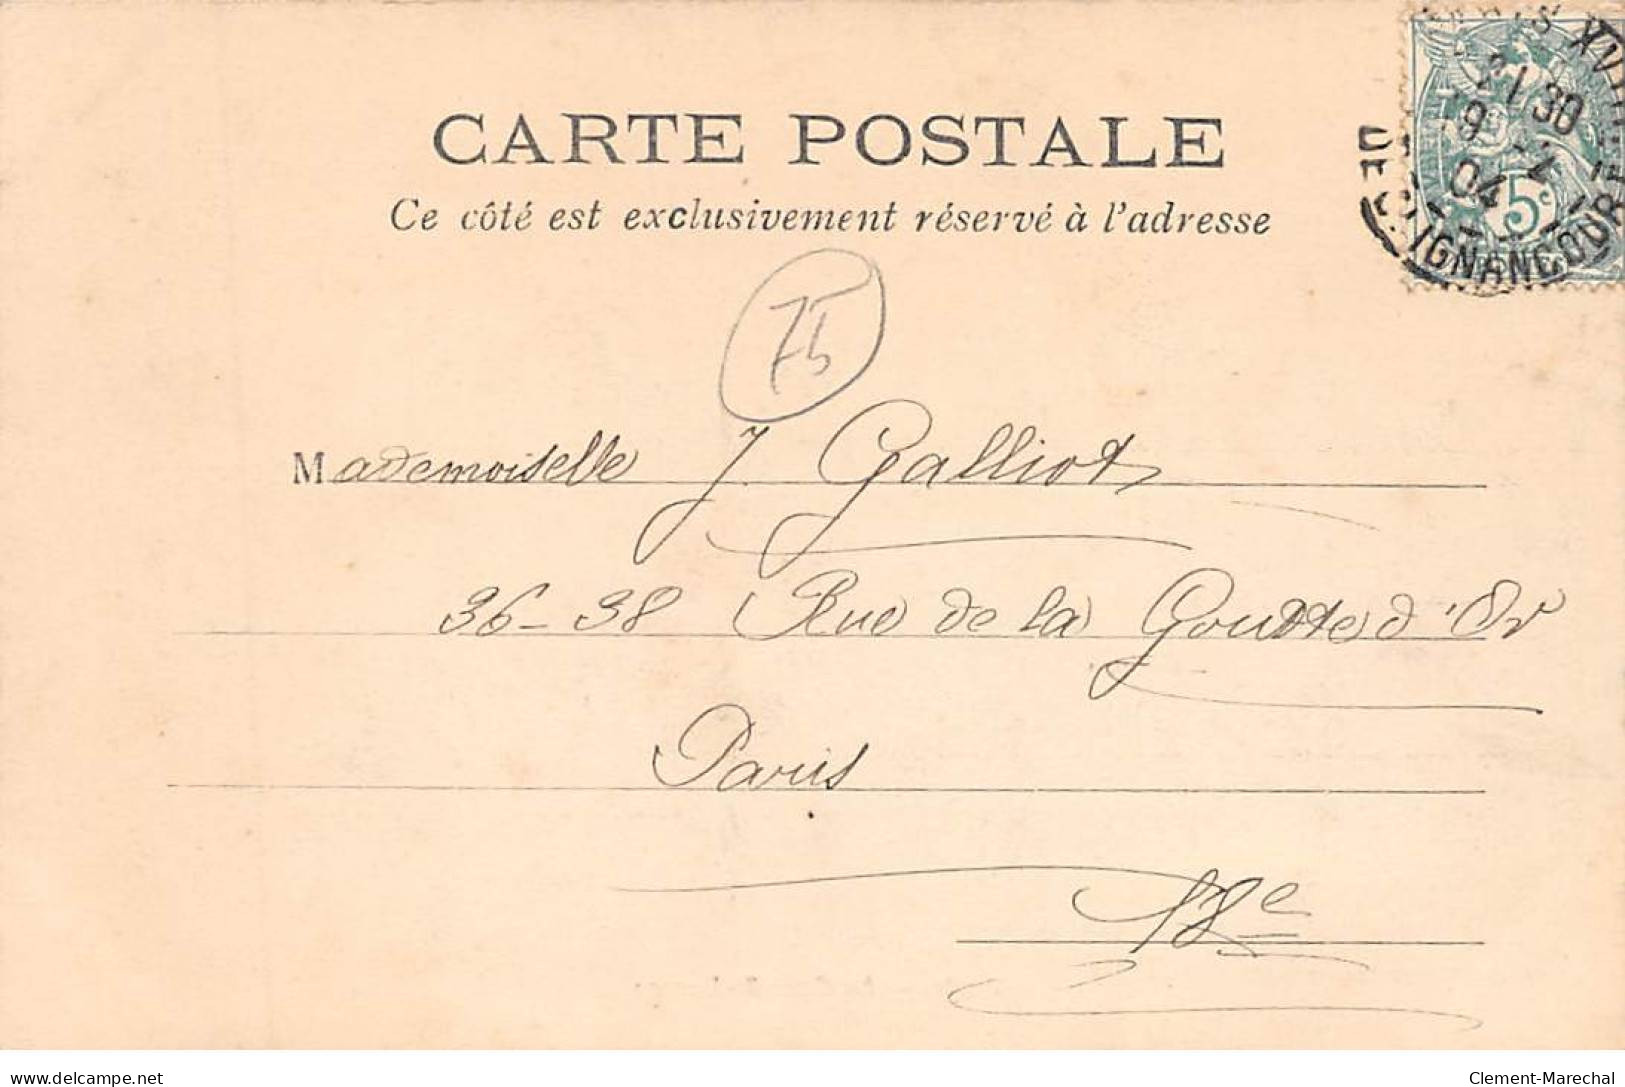 CARTE POSTALE
Ce côté est exclusivement réservé à l'adresse
XVIII
30
9
04
5c
IGNANCOURT
75
Mademoiselle J Galliot
36-38 Rue de la Goutte d'Or
Paris
18e
delcampe.net
Clement-Marechal